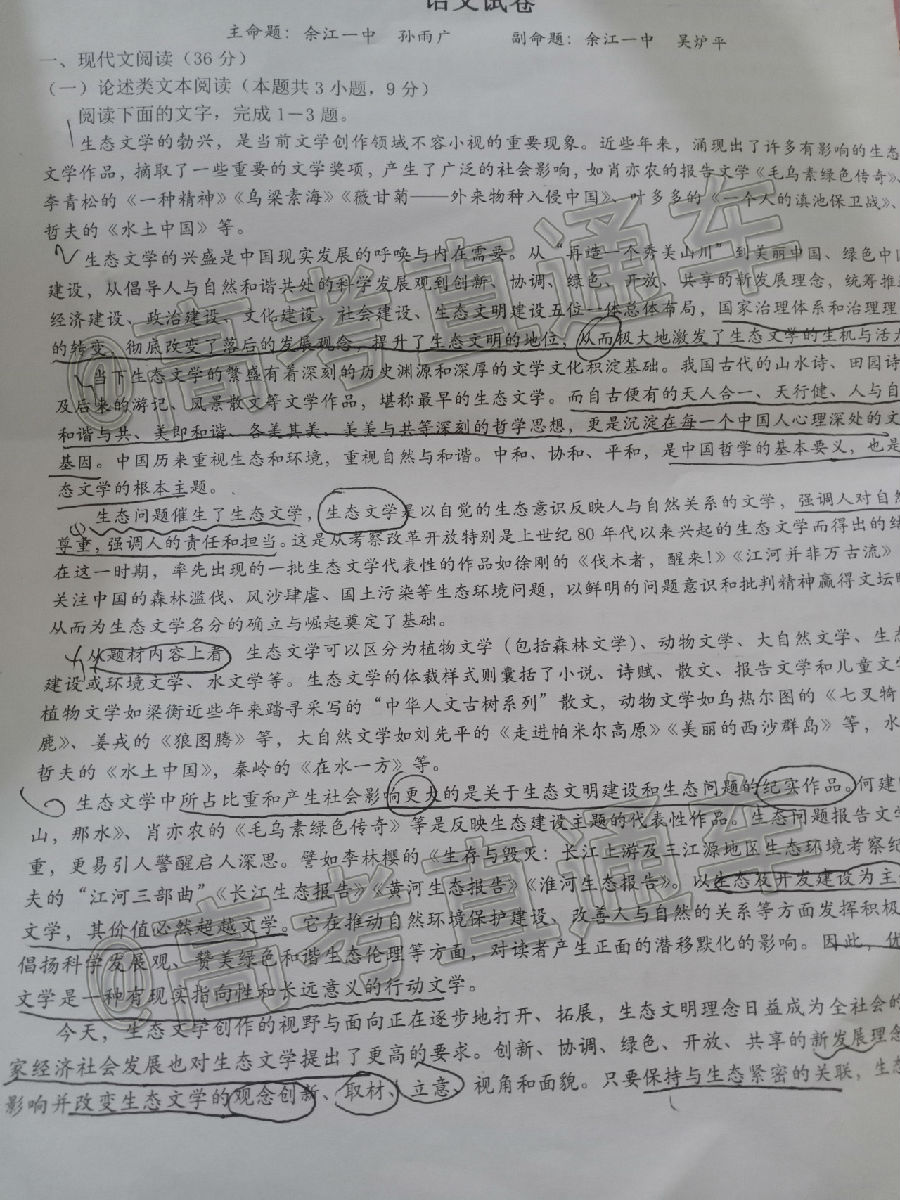 语文试卷
主命题：余江一中 孙雨广 副命题：余江一中 吴炉平
一、现代文阅读（36 分）
（一）论述类文本阅读（本题共 3 小题，9 分）
阅读下面的文字，完成 1－3 题。
生态文学的勃兴，是当前文学创作领域不容小视的重要现象。近些年来，涌现出了许多有影响的生态
文学作品，摘取了一些重要的文学奖项，产生了广泛的社会影响，如肖亦农的报告文学《毛乌素绿色传奇》、
李青松的《一种精神》《乌梁素海》《薇甘菊——外来物种入侵中国》、叶多多的《一个人的滇池保卫战》、
哲夫的《水土中国》等。
生态文学的兴盛是中国现实发展的呼唤与内在需要。从“再造一个秀美山川”到美丽中国、绿色中国
建设，从倡导人与自然和谐共处的科学发展观到创新、协调、绿色、开放、共享的新发展理念，统筹推进
经济建设、政治建设、文化建设、社会建设、生态文明建设五位一体总体布局，国家治理体系和治理理
的转变，彻底改变了落后的发展观念，提升了生态文明的地位，从而极大地激发了生态文学的生机与活
当下生态文学的繁盛有着深刻的历史渊源和深厚的文学文化积淀基础。我国古代的山水诗、田园诗
及后来的游记、风景散文等文学作品，堪称最早的生态文学。而自古便有的天人合一、天行健、人与自
和谐与共、美即和谐、各美其美、美美与共等深刻的哲学思想，更是沉淀在每一个中国人心理深处的文
基因。中国历来重视生态和环境，重视自然与和谐。中和、协和、平和，是中国哲学的基本要义，也是
态文学的根本主题。
生态问题催生了生态文学，生态文学是以自觉的生态意识反映人与自然关系的文学，强调人对自然
尊重，强调人的责任和担当。这是从考察改革开放特别是上世纪 80 年代以来兴起的生态文学而得出的结
在这一时期，率先出现的一批生态文学代表性的作品如徐刚的《伐木者，醒来！》《江河并非万古流》
关注中国的森林滥伐、风沙肆虐、国土污染等生态环境问题，以鲜明的问题意识和批判精神赢得文坛
从而为生态文学名分的确立与崛起奠定了基础。
从题材内容上看，生态文学可以区分为植物文学（包括森林文学）、动物文学、大自然文学、生态
建设或环境文学、水文学等。生态文学的体裁样式则囊括了小说、诗赋、散文、报告文学和儿童文学
植物文学如梁衡近些年来踏寻采写的“中华人文古树系列”散文，动物文学如乌热尔图的《七叉犄
鹿》、姜戎的《狼图腾》等，大自然文学如刘先平的《走进帕米尔高原》《美丽的西沙群岛》等，水
哲夫的《水土中国》，秦岭的《在水一方》等。
生态文学中所占比重和产生社会影响更大的是关于生态文明建设和生态问题的纪实作品。何建
山，那水》、肖亦农的《毛乌素绿色传奇》等是反映生态建设主题的代表性作品。生态问题报告文学
重，更易引人警醒启人深思。譬如李林樱的《生存与毁灭：长江上游及三江源地区生态环境考察纪
夫的“江河三部曲”《长江生态报告》《黄河生态报告》《淮河生态报告》。以生态及开发建设为主
文学，其价值必然超越文学。它在推动自然环境保护建设、改善人与自然的关系等方面发挥积极
倡扬科学发展观、赞美绿色和谐生态伦理等方面，对读者产生正面的潜移默化的影响。因此，优
文学是一种有现实指向性和长远意义的行动文学。
今天，生态文学创作的视野与面向正在逐步地打开、拓展，生态文明理念日益成为全社会的
家经济社会发展也对生态文学提出了更高的要求。创新、协调、绿色、开放、共享的新发展理念
影响并改变生态文学的观念创新、取材、立意、视角和面貌。只要保持与生态紧密的关联，生态
@高考直通车
@高考直通车